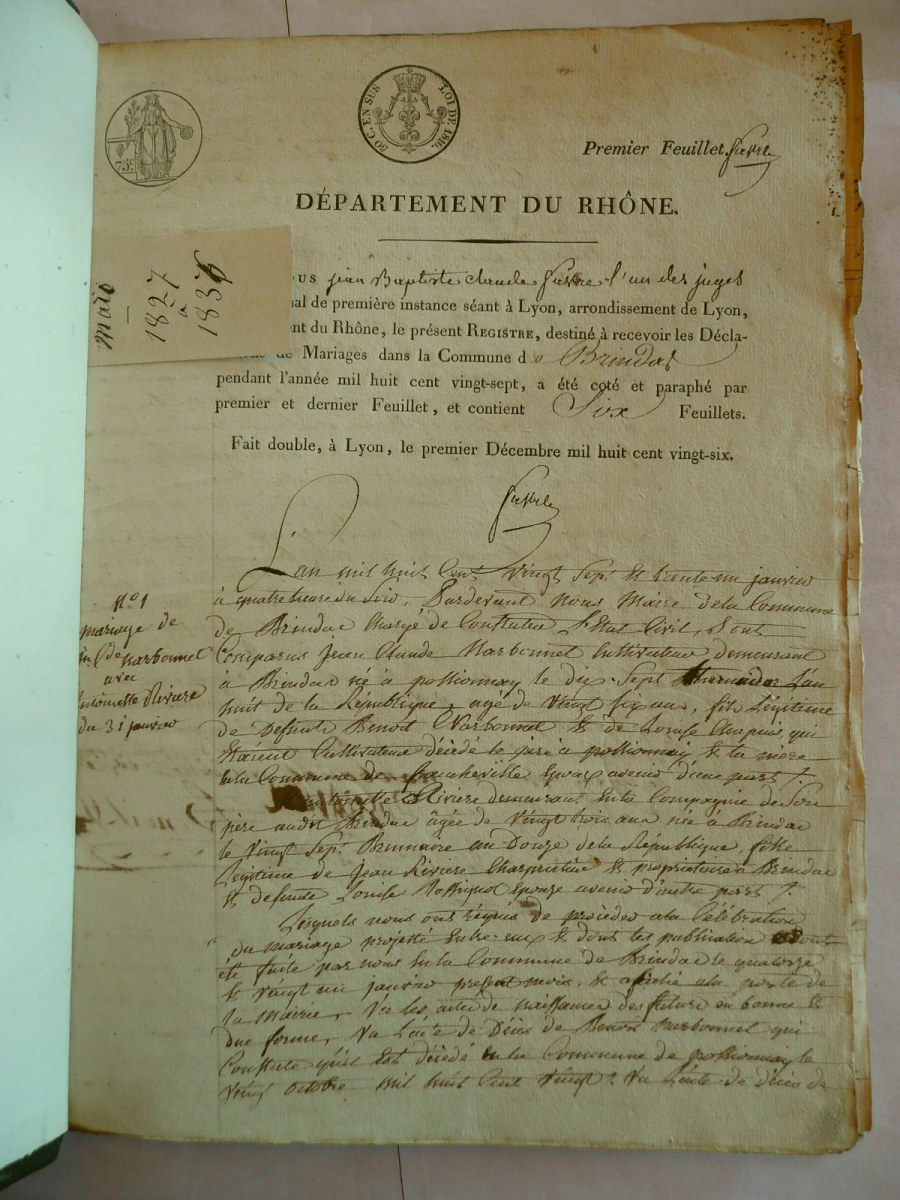 75.c
50 C. EN SUS
LOI DE 1816.
Premier Feuillet.
DÉPARTEMENT DU RHÔNE.
Mari
1827
à
1836
ous jean Baptiste claude l'un des juges
nal de première instance séant à Lyon, arrondissement de Lyon,
ent du Rhône, le présent REGISTRE, destiné à recevoir les Décla-
de Mariages dans la Commune de Brindas
pendant l'année mil huit cent vingt-sept, a été coté et paraphé par
premier et dernier Feuillet, et contient Six Feuillets.
Fait double, à Lyon, le premier Décembre mil huit cent vingt-six.
N° 1
mariage de
narbonnet
avec
antoinette Riviere
du 31 janvier
L'an mil huit cent vingt sept et trente un janvier
à quatre heure du soir, Pardevant nous Maire de la Commune
de Brindas chargé de Constater l'Etat Civil, sont
Comparus jean Claude Narbonnet Cultivateur demeurant
à Brindas né a pollionnay le dix sept thermidor L'an
huit de la République, agé de vingt six ans, fils Légitime
de Defunts Benoit Narbonnet et de
étaient Cultivateur décédé le pere a pollionnay et la mere
en la Commune de francheville Epoux avenir d'une part
antoinette Riviere demeurant en la Compagnie de Son
père audit Brindas âgée de vingt trois ans née à Brindas
le vingt sept Brumaire an Douze de la République, fille
Légitime de Jean Riviere Charpentier et propriétaire à Brindas
et defunte Louise Epouse avenir d'autre part
Lesquels nous ont requis de procéder a la Célébration
du mariage projetté entre eux et dont les publication ont
été faite par nous en la Commune de Brindas le quatorze
et vingt un janvier présent mois, et affiché a la porte de
la Mairie, Vu les actes de naissances des futurs en bonne et
due forme, Vu l'acte de Décès de Benoit Narbonnet qui
Constate qu'il est décédé en la Commune de pollionnay le
vingt octobre mil huit cent vingt, Vu l'acte de décès de